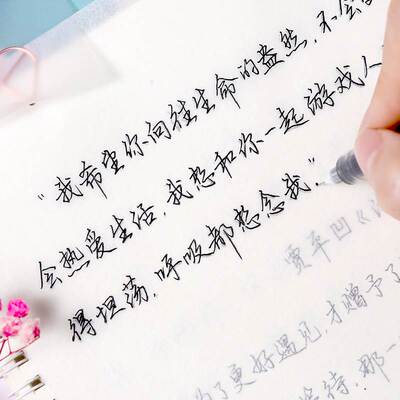 “我希望你向往生命的盎然,不会
会热爱生活,我想和你一起游戏人
得坦荡,呼吸都想念我.”
贾平凹《
了更好遇见,才赠予了
待,那一